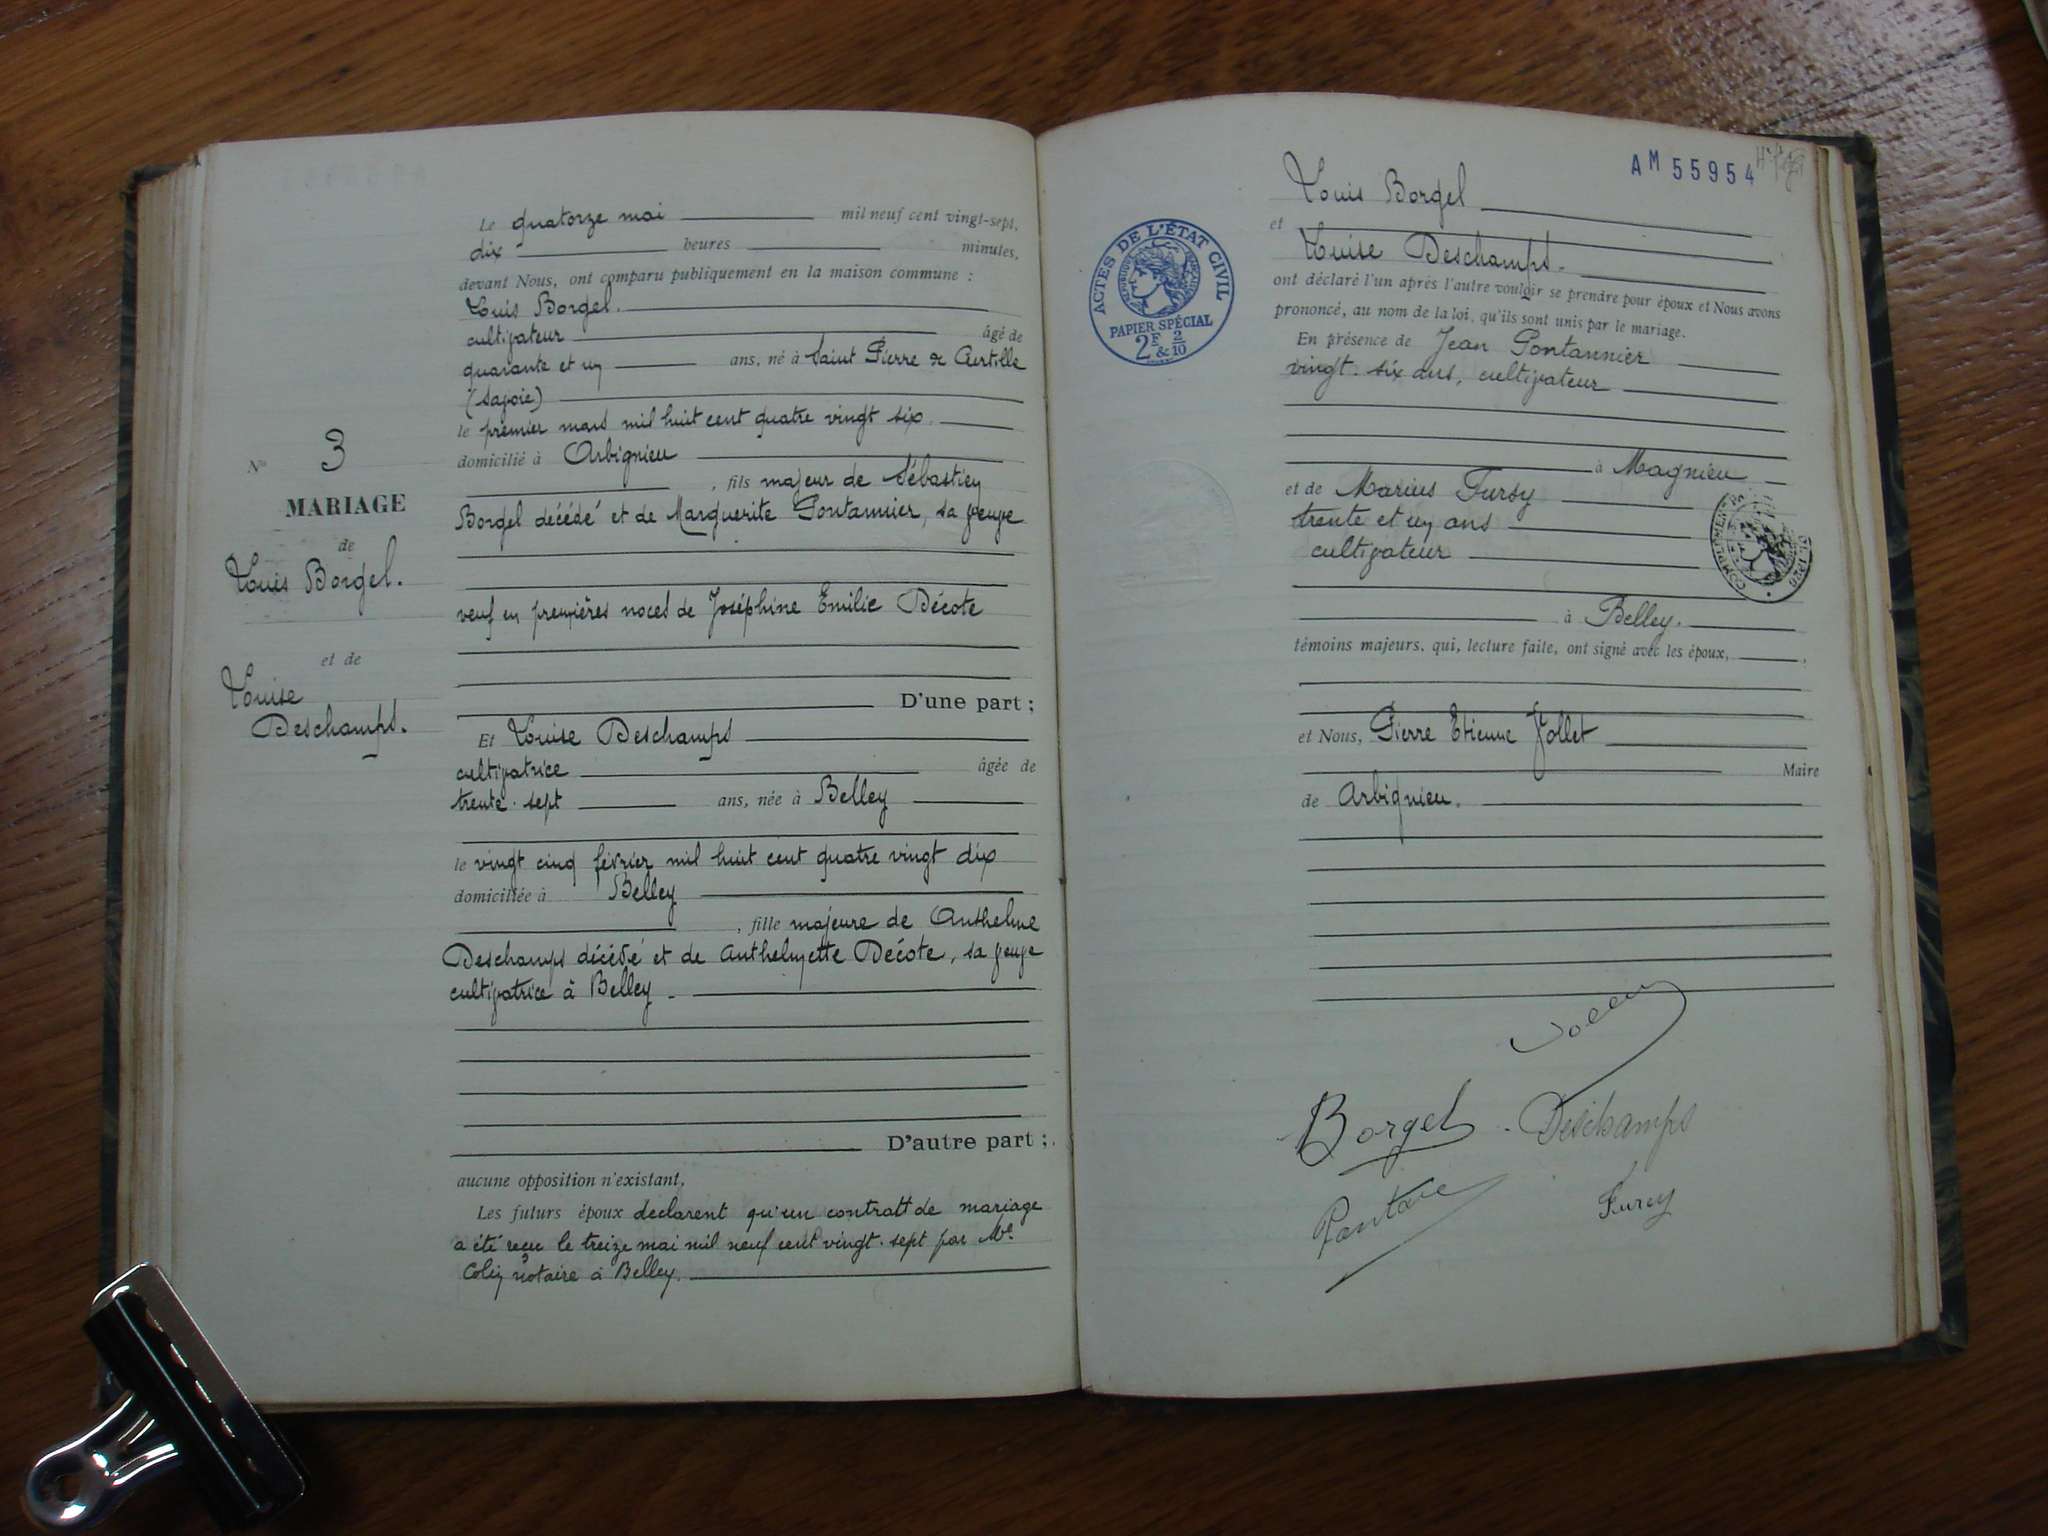 Le quatorze mai mil neuf cent vingt-sept,
dix heures minutes,
devant Nous, ont comparu publiquement en la maison commune :
Louis Borgel.
cultivateur âgé de
quarante et un ans, né à Saint Pierre de
(Savoie)
le premier mars mil huit cent quatre vingt six
domicilié à Arbignieu
, fils majeur de Sébastien
Borgel décédé et de Marguerite Pontannier, sa veuve
veuf en premières noces de Joséphine Emilie Décote
D'une part ;
N° 3
MARIAGE
de
Louis Borgel.
et de
Louise
Deschamps.
Et Louise Deschamps
cultivatrice âgée de
trente-sept ans, née à Belley
le vingt cinq février mil huit cent quatre vingt dix
domiciliée à Belley
, fille majeure de Anthelme
Deschamps décédé et de Anthelmette Décote, sa veuve
cultivatrice à Belley
D'autre part ;
aucune opposition n'existant,
Les futurs époux déclarent qu'un contratt de mariage
a été reçu le treize mai mil neuf cent vingt-sept par Me
Colin notaire à Belley.
AM 55954
Louis Borgel
et
Louise Deschamps.
ont déclaré l'un après l'autre vouloir se prendre pour époux et Nous avons
prononcé, au nom de la loi, qu'ils sont unis par le mariage.
En présence de Jean Pontannier
vingt-six ans, cultivateur
à Magnieu
et de Marius Fursy
trente et un ans
cultivateur
à Belley.
témoins majeurs, qui, lecture faite, ont signé avec les époux,
et Nous, Pierre Etienne Jollet
Maire
de Arbignieu.
ACTES DE L'ÉTAT CIVIL
RÉPUBLIQUE FRANÇAISE
PAPIER SPÉCIAL
2F & 2/10
Borgel Deschamps
Furcy